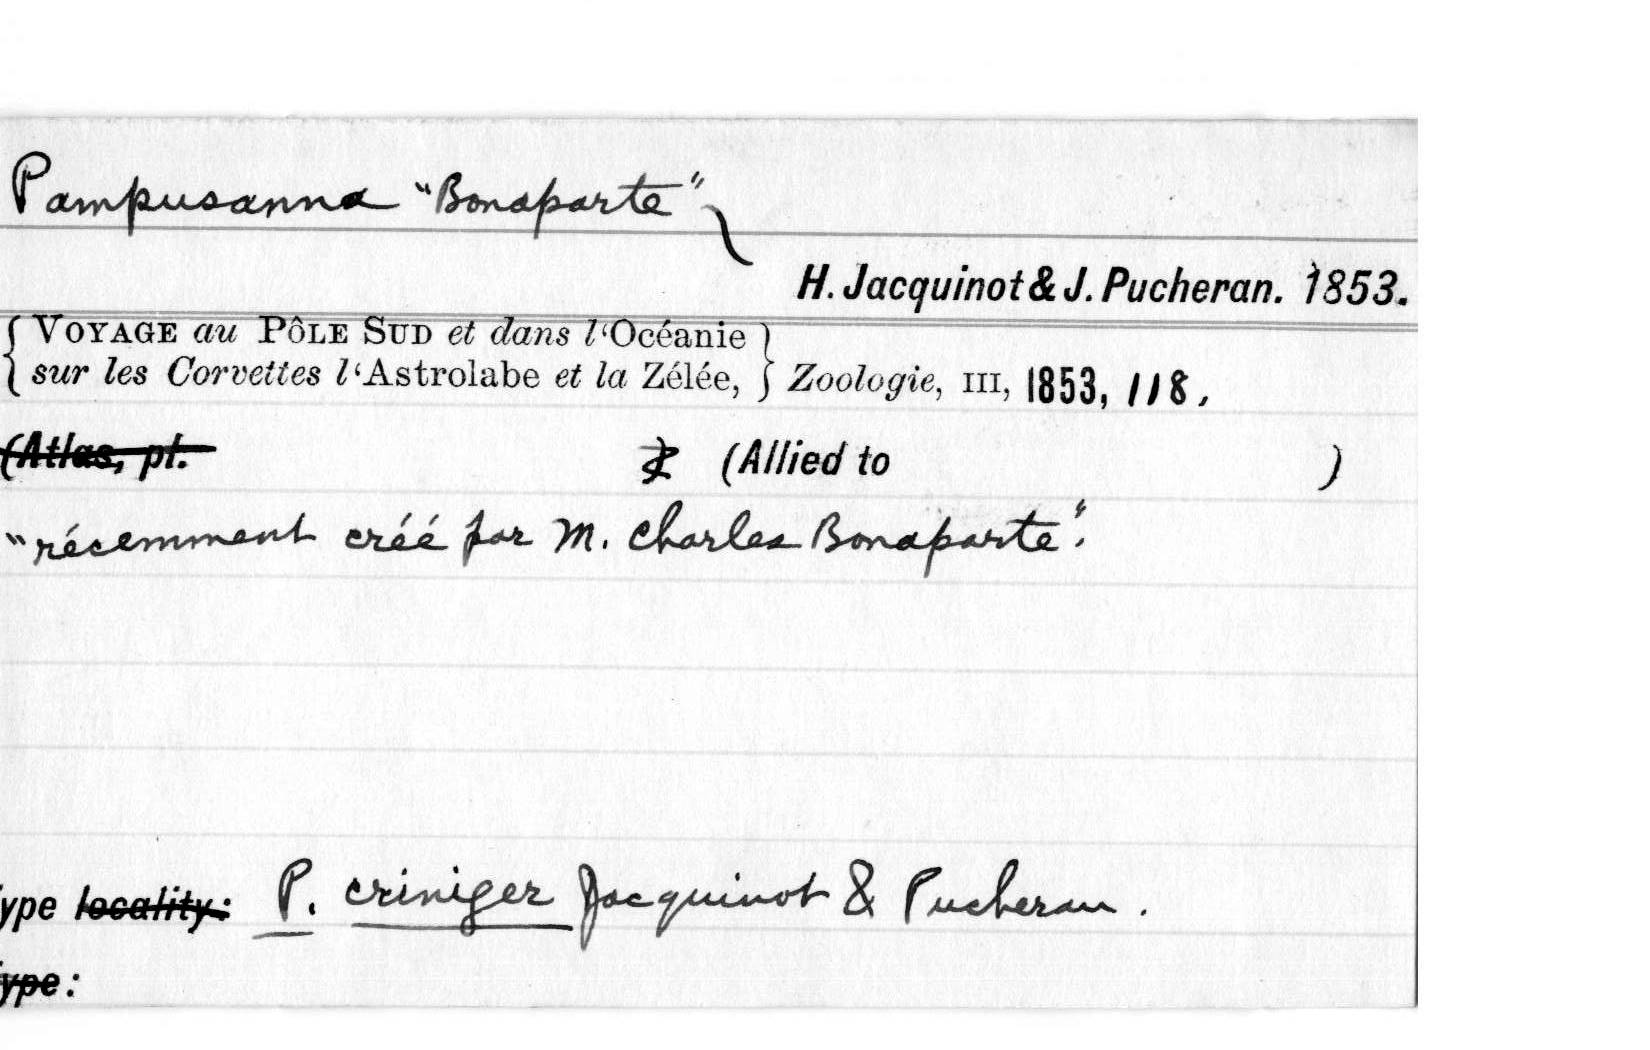 Pampusanna "Bonaparte"
H. Jacquinot & J. Pucheran. 1853.
VOYAGE au PÔLE SUD et dans l'Océanie
sur les Corvettes l'Astrolabe et la Zélée, Zoologie, III, 1853, 118.
(Atlas, pl. (Allied to )
"récemment créé par M. Charles Bonaparte".
ype locality: P. criniger Jacquinot & Pucheran.
ype: